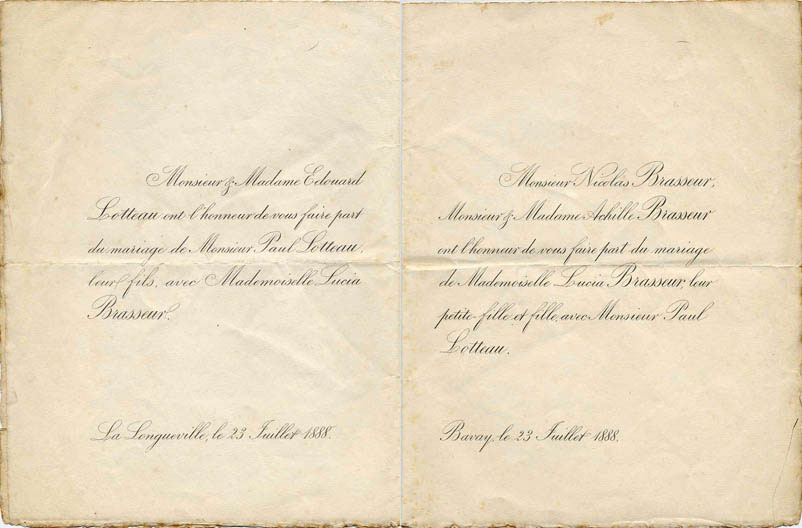 Monsieur & Madame Edouard
Lotteau ont l'honneur de vous faire part
du mariage de Monsieur Paul Lotteau,
leur fils, avec Mademoiselle Lucia
Brasseur.
La Longueville, le 23 Juillet 1888.
Monsieur Nicolas Brasseur,
Monsieur & Madame Achille Brasseur
ont l'honneur de vous faire part du mariage
de Mademoiselle Lucia Brasseur, leur
petite-fille et fille, avec Monsieur Paul
Lotteau.
Bavay, le 23 Juillet 1888.